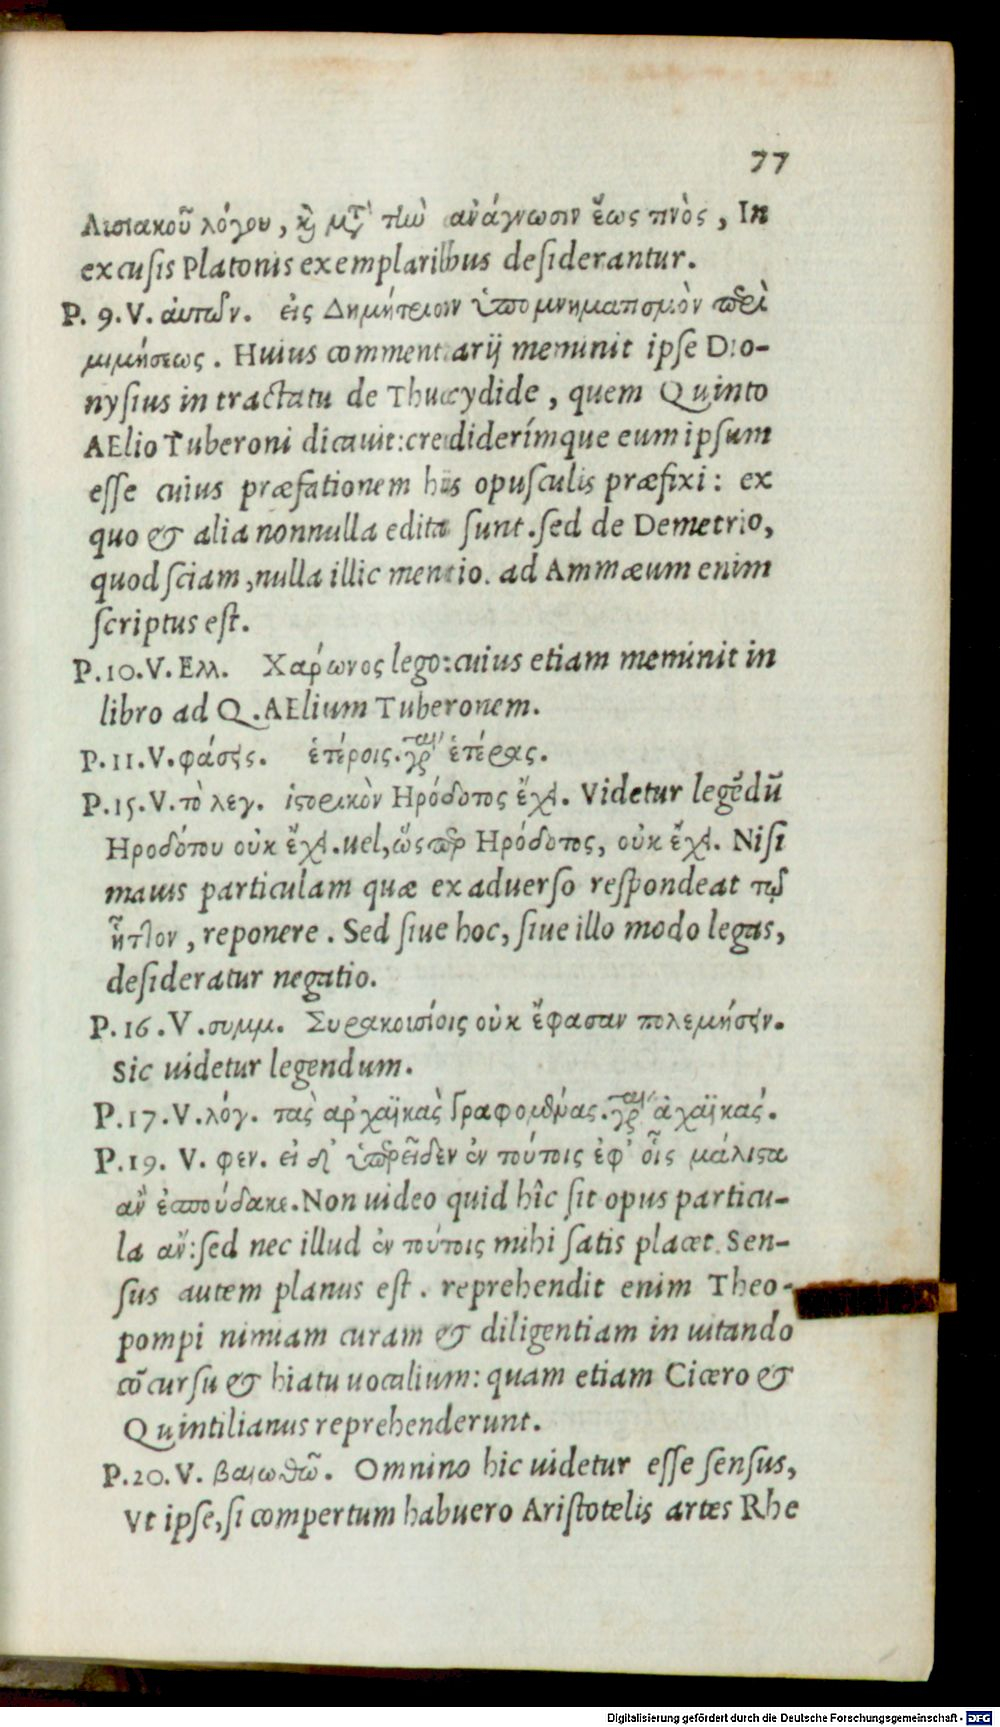 77
Λισιακοῦ λόγου, καὶ μετὰ τὴν ἀνάγνωσιν ἕως τινὸς, In
excusis Platonis exemplaribus desiderantur.
P. 9. V. αὐτῶν. εἰς Δημήτριον ὑπομνηματισμὸν περὶ
μιμήσεως. Huius commentarij meminit ipse Dio-
nysius in tractatu de Thucydide, quem Quinto
AElio Tuberoni dicauit: crediderímque eum ipsum
esse cuius præfationem his opusculis præfixi: ex
quo & alia nonnulla edita sunt. sed de Demetrio,
quod sciam, nulla illic mentio. ad Ammæum enim
scriptus est.
P. 10. V. Ελλ. Χάρωνος lego: cuius etiam meminit in
libro ad Q. AElium Tuberonem.
P. 11. V. φάσεις. ἑτέροις. γρ. καὶ ἑτέρας.
P. 15. V. τὸ λεγ. ἱστορικὸν Ηρόδοτος ἔχει. Videtur legẽdũ
Ηροδότου οὐκ ἔχει. uel, ὥσπερ Ηρόδοτος, οὐκ ἔχει. Nisi
mauis particulam quæ ex aduerso respondeat τῷ
ἧττον, reponere. Sed siue hoc, siue illo modo legas,
desideratur negatio.
P. 16. V. συμμ. Συρακουσίοις οὐκ ἔφασαν πολεμήσειν.
Sic uidetur legendum.
P. 17. V. λόγ. τὰς ἀρχαϊκὰς γραφομένας. γρ. καὶ ἀχαϊκάς.
P. 19. V. φεν. εἰ δὲ ὑπερεῖδεν ἐν τούτοις ἐφ’ οἷς μάλιστα
ἂν ἐσπούδακε. Non uideo quid hîc sit opus particu-
la ἂν: sed nec illud ἐν τούτοις mihi satis placet. Sen-
sus autem planus est. reprehendit enim Theo-
pompi nimiam curam & diligentiam in uitando
cõcursu & hiatu uocalium: quam etiam Cicero &
Quintilianus reprehenderunt.
P. 20. V. βαιωθῶ. Omnino hic uidetur esse sensus,
Vt ipse, si compertum habuero Aristotelis artes Rhe
Digitalisierung gefördert durch die Deutsche Forschungsgemeinschaft - DFG